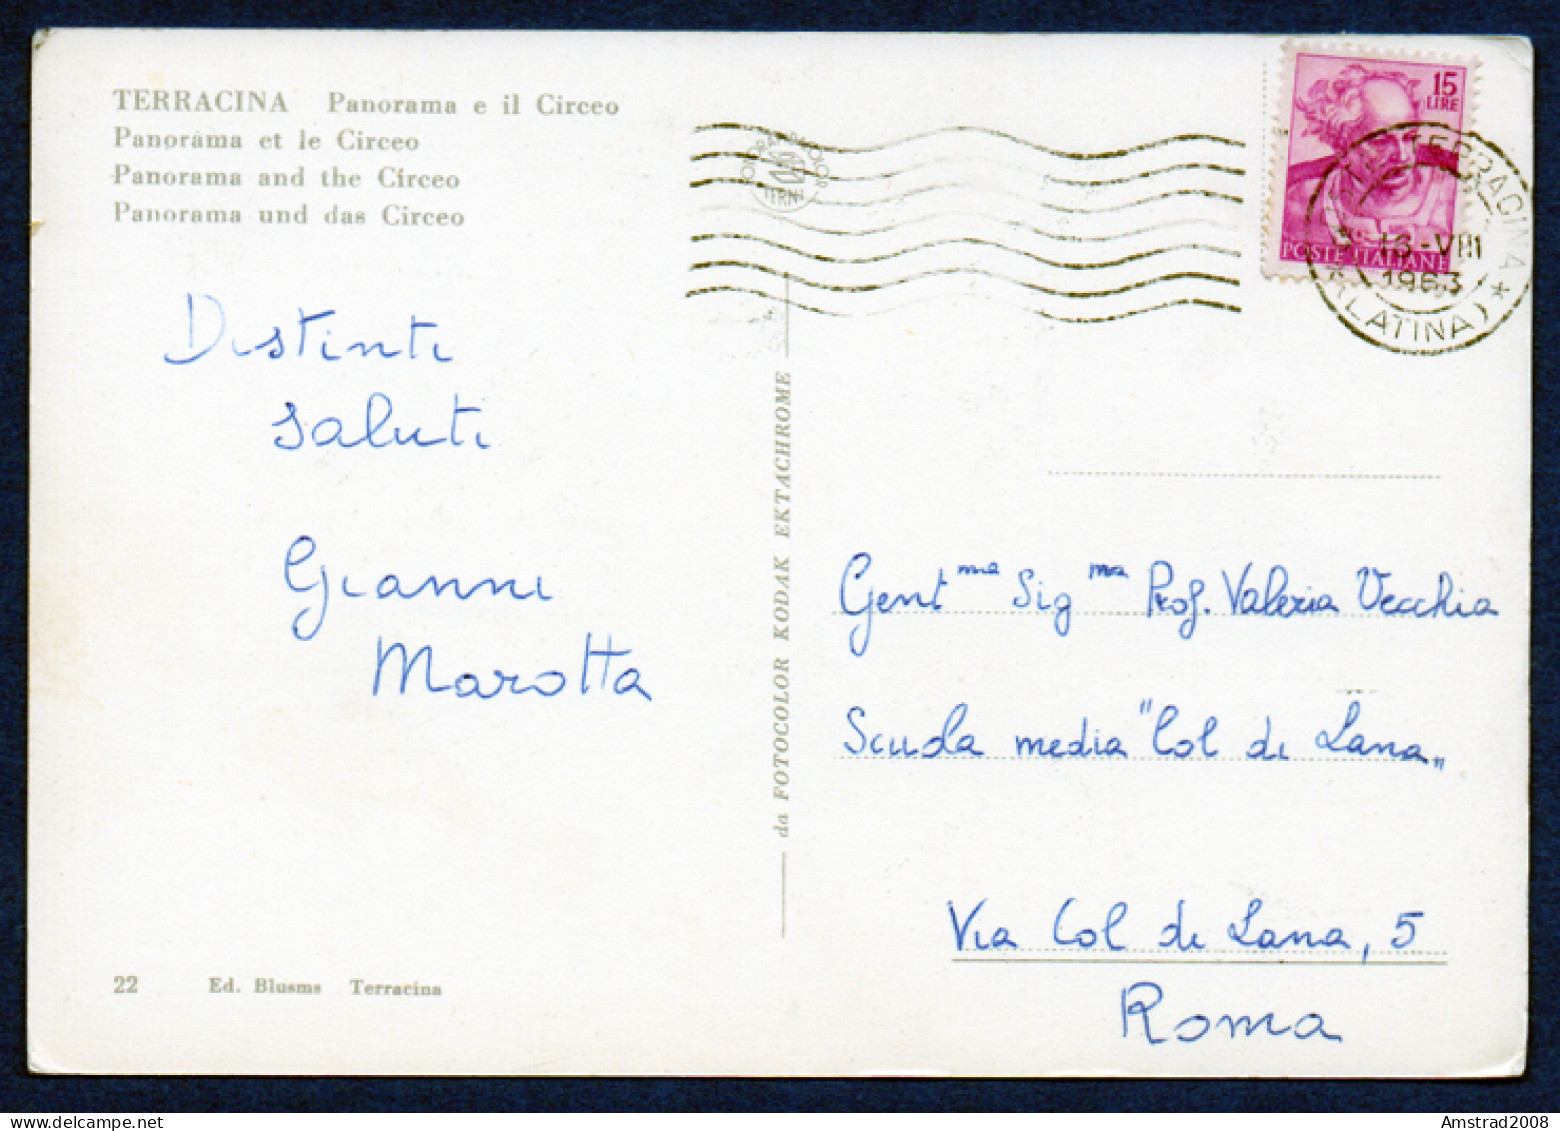 TERRACINA Panorama e il Circeo
Panorama et le Circeo
Panorama and the Circeo
Panorama und das Circeo
15
LIRE
POSTE ITALIANE
TERRACINA *
16-VIII
1963
(LATINA)
TERNI
Distinti
saluti
Gianni
Marotta
da FOTOCOLOR KODAK EKTACHROME
Gent ma Sig ma Prof. Valeria Vecchia
Scuola media "Col di Lana„
Via Col di Lana, 5
Roma
22 Ed. Blusms Terracina
Amstrad2008